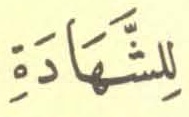 لِلشَّهَادَةِ